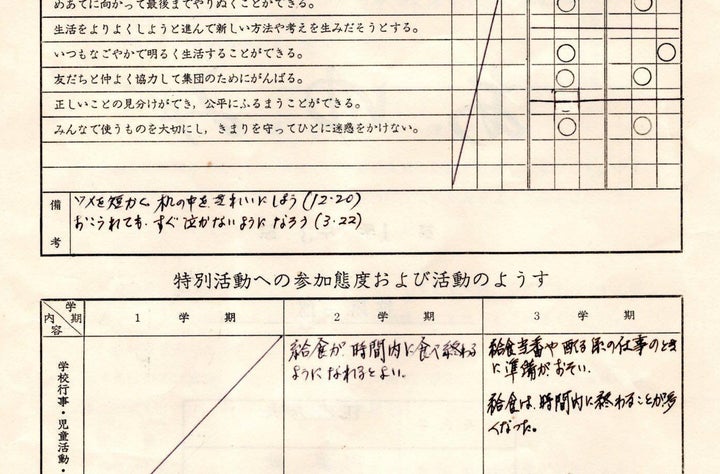 めあてに向かって最後までやりぬくことができる。
生活をよりよくしようと進んで新しい方法や考えを生みだそうとする。
いつもなごやかで明るく生活することができる。
友だちと仲よく協力して集団のためにがんばる。
正しいことの見分けができ,公平にふるまうことができる。
みんなで使うものを大切にし,きまりを守ってひとに迷惑をかけない。
備考
ツメを短かく、机の中をきれいにしよう(12.20)
おこうれても、すぐ泣かないようになろう(3.22)
特別活動への参加態度および活動のようす
学期
内容
1 学期
2 学期
3 学期
学校行事・児童活動・
給食が、時間内に食べ終わる
ようになれるとよい。
給食当番や配る系の仕事のとき
に準備がおそい。
給食は、時間内に終わることが多
くなった。